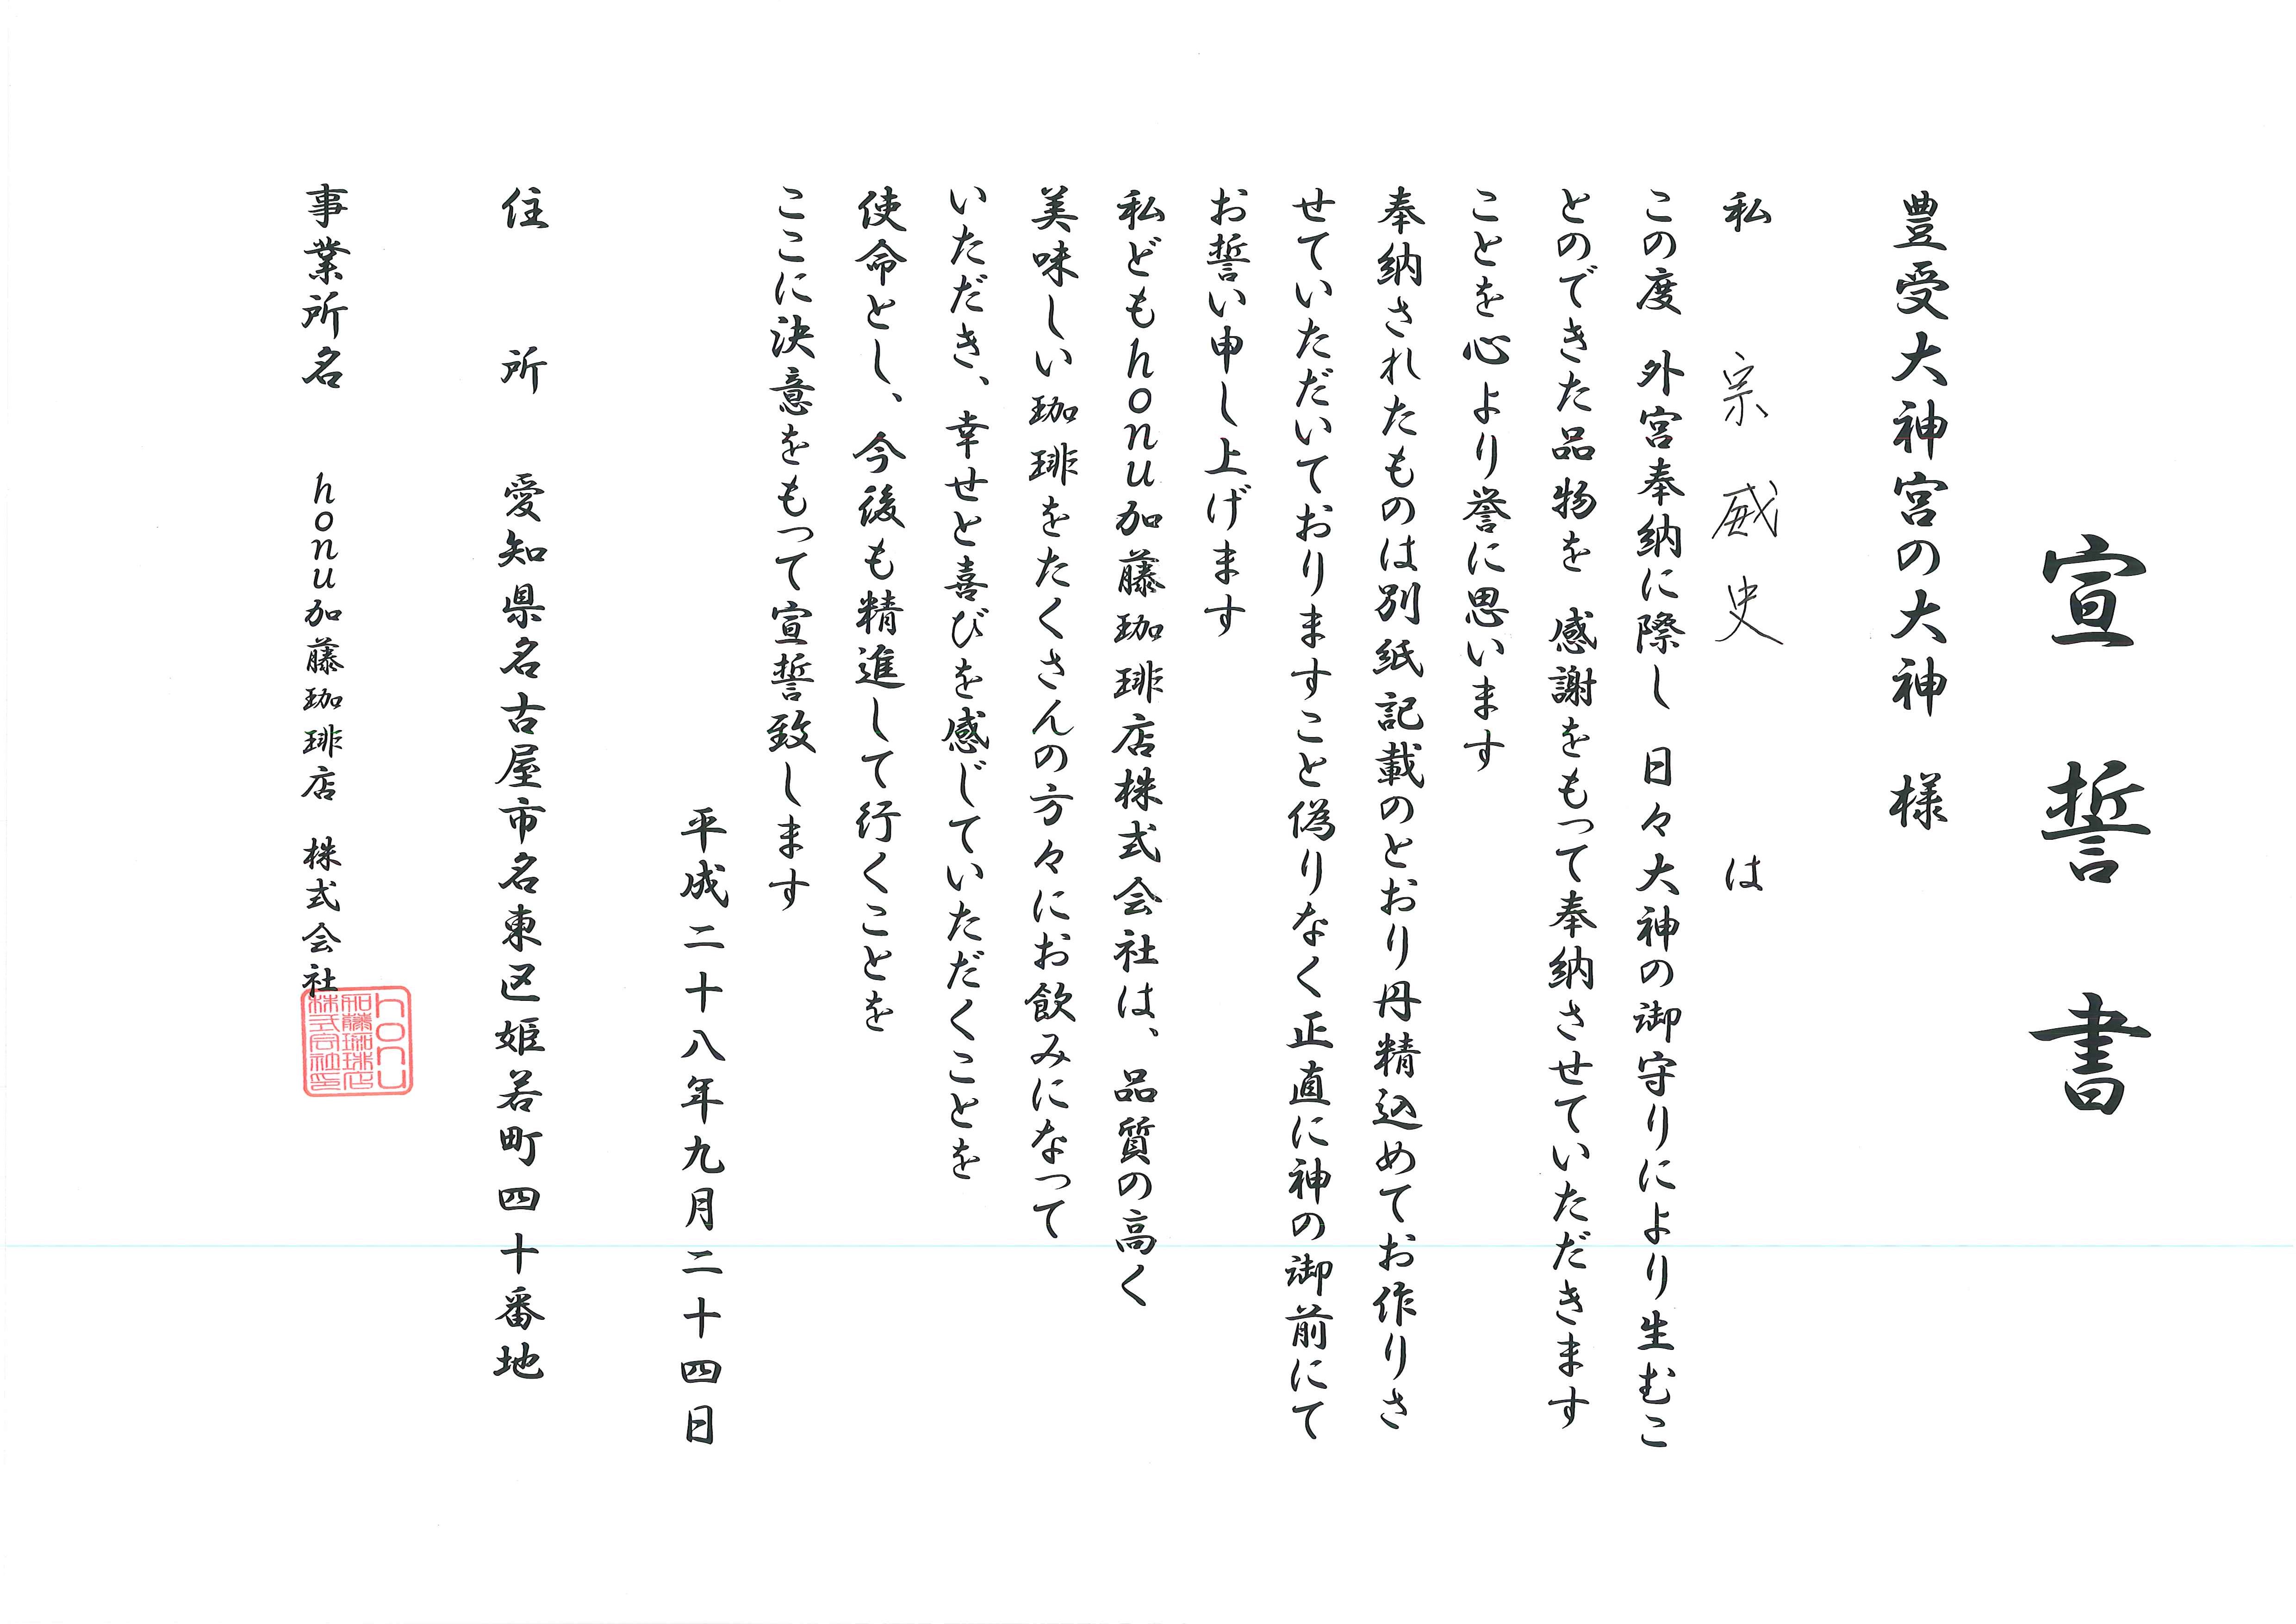 宣誓書
豊受大神宮の大神　様
私　宗　威　史　は
この度　外宮奉納に際し　日々大神の御守りにより生むこ
とのできた品物を　感謝をもって奉納させていただきます
ことを心より誉に思います
奉納されたものは別紙記載のとおり丹精込めてお作りさ
せていただいておりますこと偽りなく正直に神の御前にて
お誓い申し上げます
私どもhonu加藤珈琲店株式会社は、品質の高く
美味しい珈琲をたくさんの方々にお飲みになって
いただき、幸せと喜びを感じていただくことを
使命とし、今後も精進して行くことを
ここに決意をもって宣誓致します
平成二十八年九月二十四日
住　所　愛知県名古屋市名東区姫若町四十番地
事業所名　honu加藤珈琲店　株式会社
honu
加藤珈琲店
株式会社印